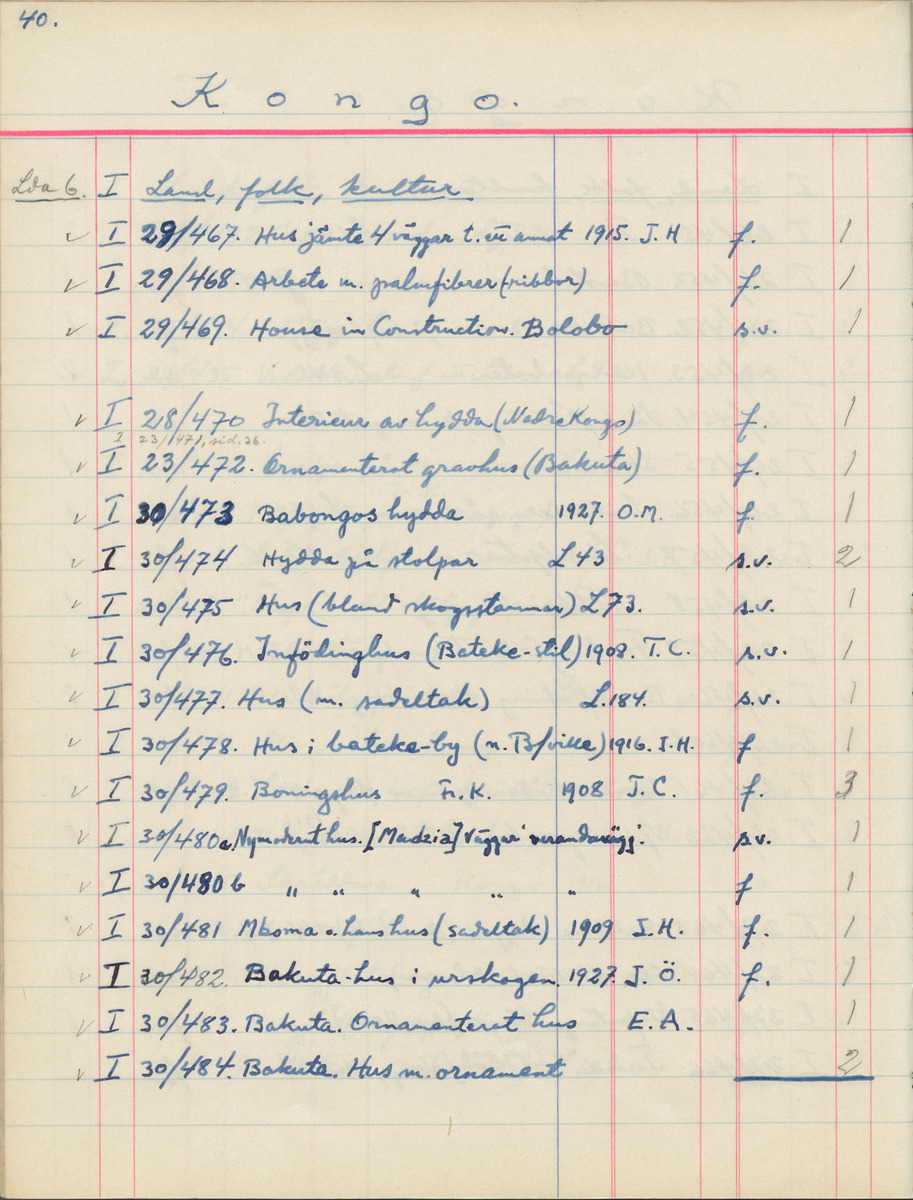 40.
Kongo.
Lda 6. I Land, folk, kultur
✓ I 29/467. Hus jämte 4 väggar t. ett annat 1915. J.H f. 1
✓ I 29/468. Arbete m. palmfibrer (-ribbor) f. 1
✓ I 29/469. House in Construction. Bolobo s.v. 1
✓ I 28/470 Interieur av hydda (Nedre Kongo) f. 1
I 23/471, sid. 36.
✓ I 23/472. Ornamenterat gravhus (Bakuta) f. 1
✓ I 30/473 Babongos hydda 1927. O.M. f. 1
✓ I 30/474 Hydda på stolpar L43 s.v. 2
✓ I 30/475 Hus (bland skogsstammar) L73. s.v. 1
✓ I 30/476. Infödinghus (Bateke-stil) 1908. T.C. s.v. 1
✓ I 30/477. Hus (m. sadeltak) L.184. s.v. 1
✓ I 30/478. Hus i bateke-by (n. B/ville) 1916. J.H. f 1
✓ I 30/479. Boningshus Fr. K. 1908 J.C. f. 3
✓ I 30/480a. Nymodernt hus. [Madzia] Väggar s.v. 1
✓ I 30/480 b " " " " " f 1
✓ I 30/481 Mboma o. hans hus (sadeltak) 1909 J.H. f. 1
✓ I 30/482. Bakuta-hus i urskogen. 1927. J.Ö. f. 1
✓ I 30/483. Bakuta. Ornamenterat hus E.A. 1
✓ I 30/484. Bakuta. Hus m. ornament 2